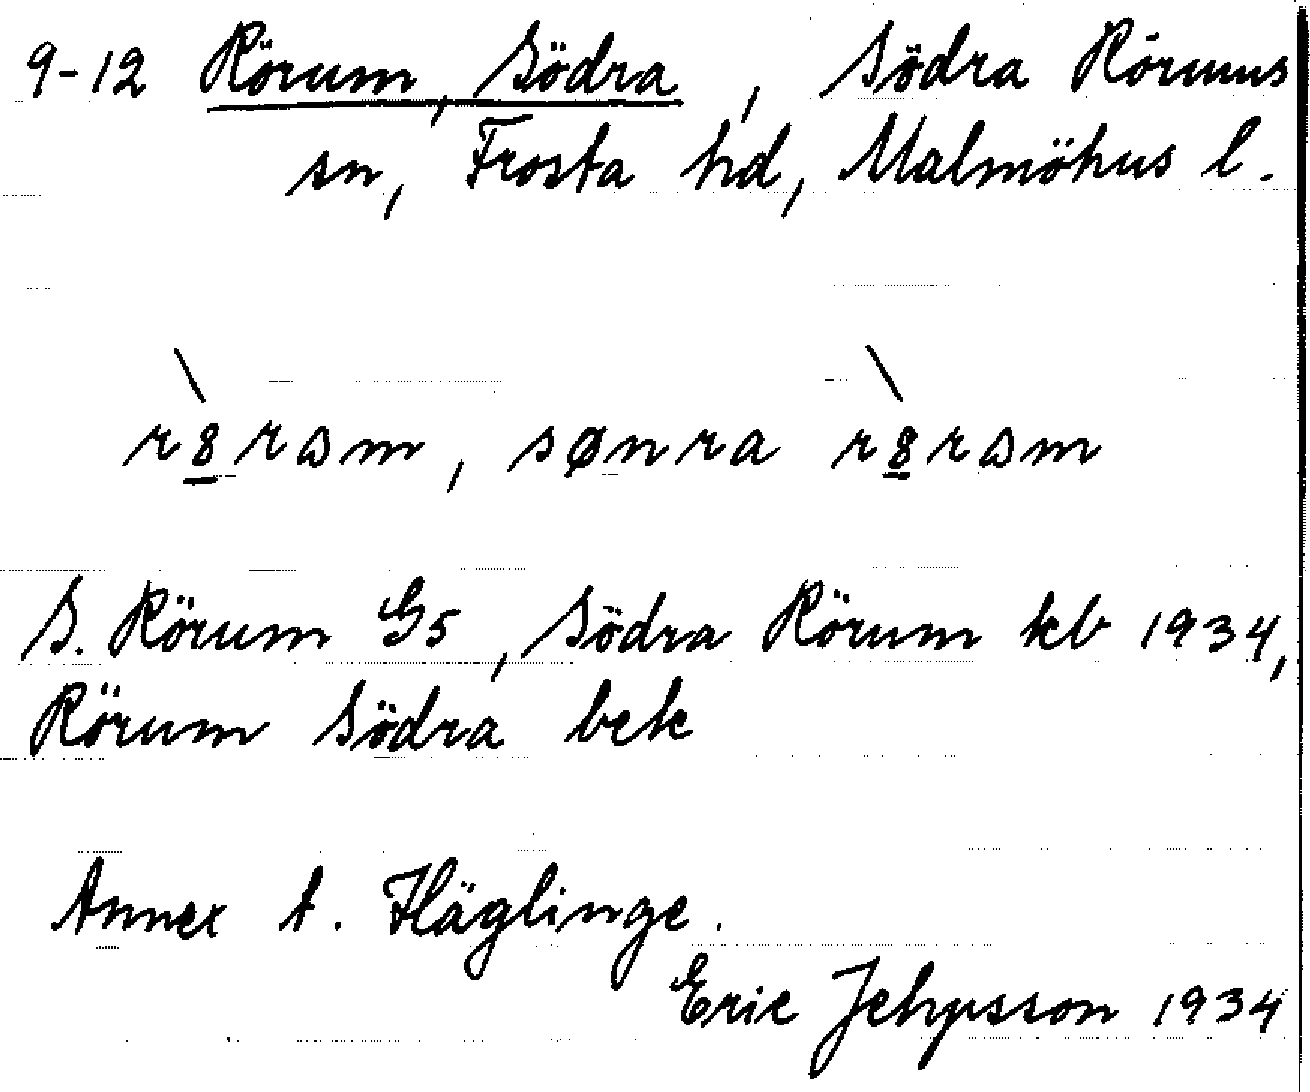 9-12 Rörum, Södra, Södra Rörums
sn, Frosta hd, Malmöhus l.
sønra
S. Rörum G5, Södra Rörum kb 1934,
Rörum Södra bek
Annex t. Häglinge.
Eric Jehpsson 1934